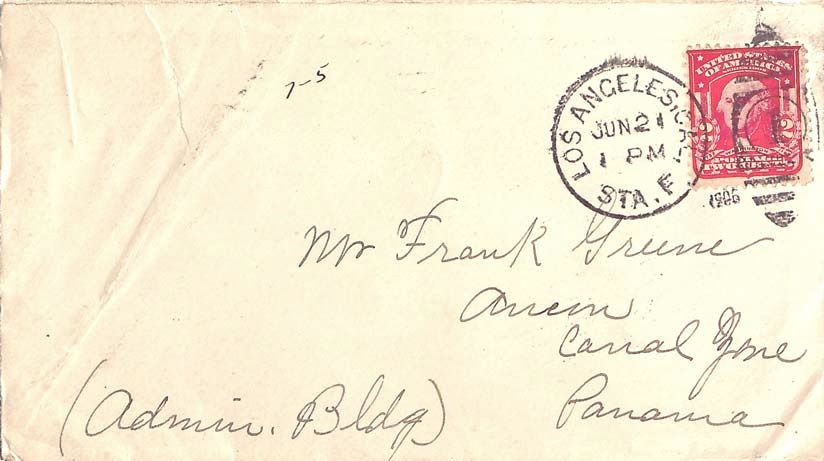 7-5
LOS ANGELES, CAL.
JUN 21
1 PM
STA. F.
UNITED STATES
OF AMERICA
2
TWO CENTS
Mr Frank Greene
Ancon
Canal Zone
Panama
(Admin. Bldg)